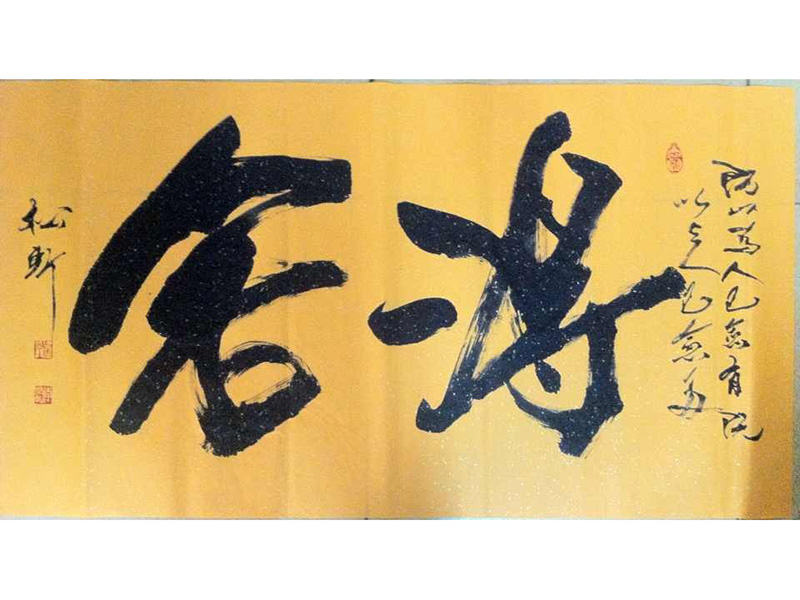 既以為人己愈有既
以与人己愈多
得舍
松